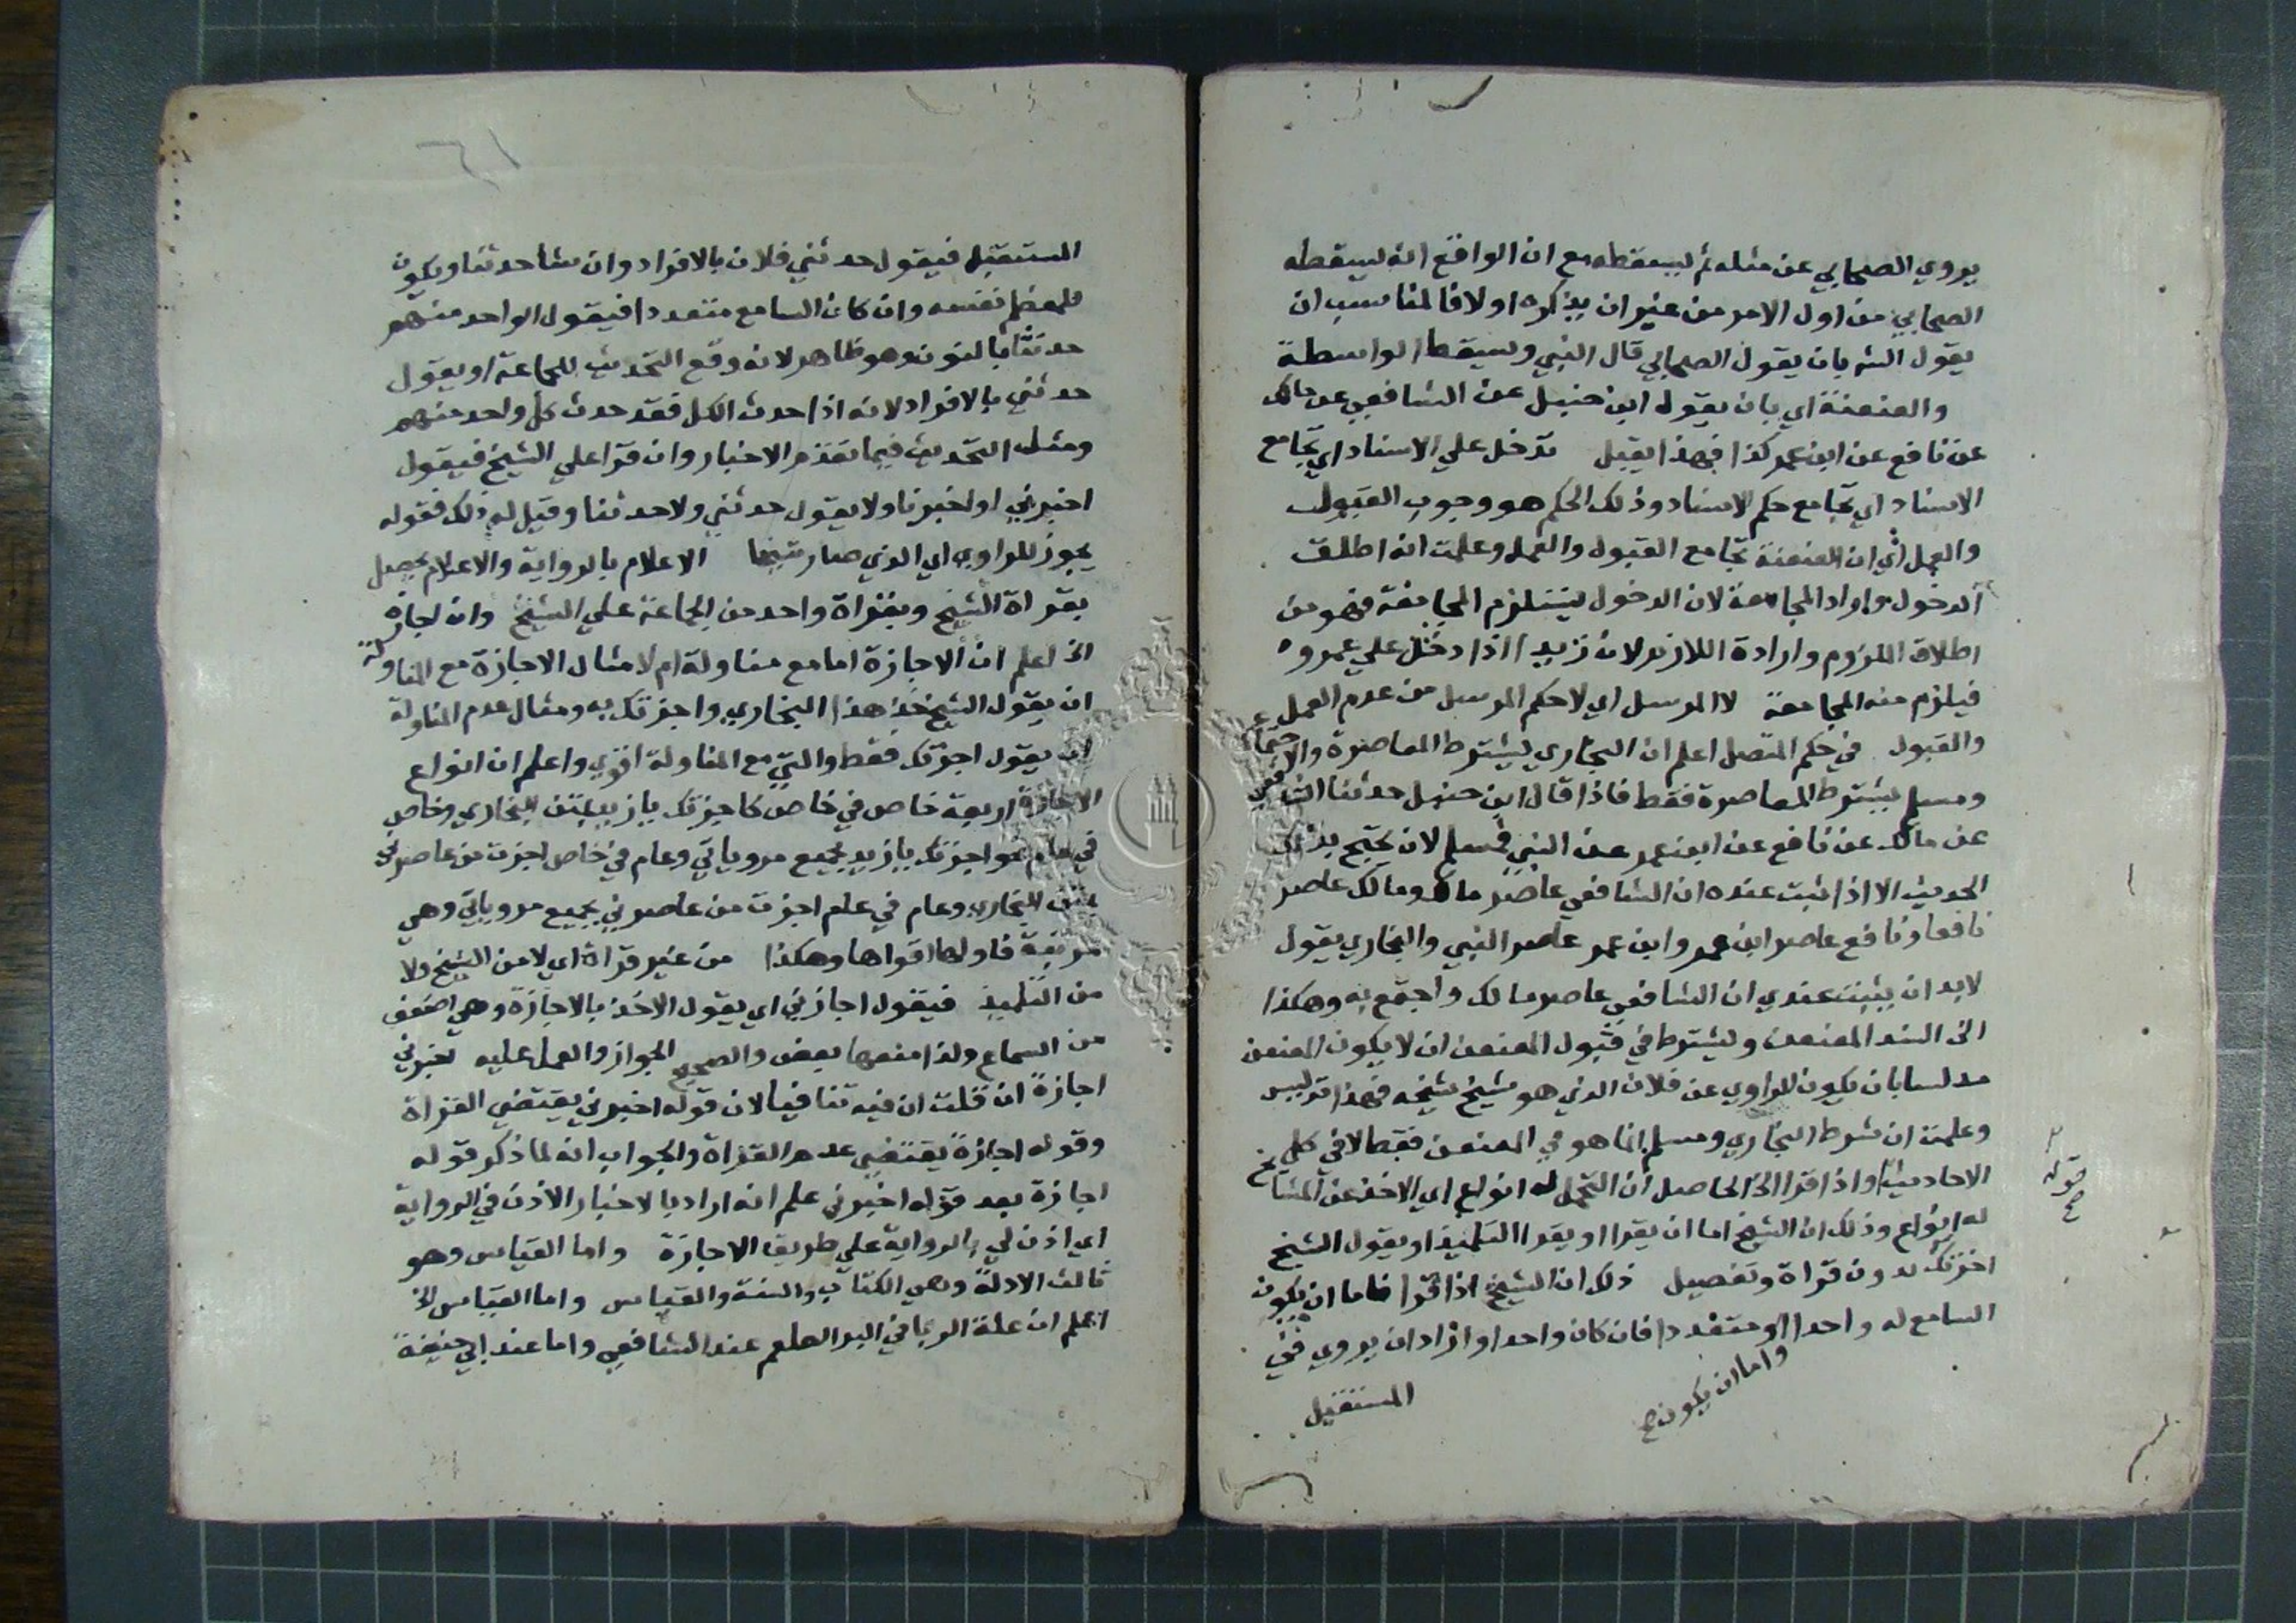 يروي الصحابي عن مثله ثم يسقطه مع ان الواقع انه يسقطه
الصحابي من اول الامر من غير ان يذكره اولا فالمناسب ان
يقول الشه بان يقول الصحابي قال النبي ويسقط الواسطة
والعنعنة اي بان يقول ابن حنبل عن الشافعي عن مالك
عن نافع عن ابن عمر كذا فهذا يقبل تدخل علي الاسناد اي تجامع
الاسناد اي تجامع حكم الاسناد وذلك الحكم هو وجوب القبول
والعمل اي ان العنعنة تجامع القبول والعمل وعلمت انه اطلق
الدخول واراد المجامعة لان الدخول يستلزم المجامعة فهو من
اطلاق الملزوم وارادة اللازم لان زيدا اذا دخل علي عمرو
فيلزم منه المجامعة لا المرسل اي لا حكم المرسل من عدم العمل
والقبول في حكم المتصل اعلم ان البخاري يشترط المعاصرة والاجتماع
ومسلم يشترط المعاصرة فقط فاذا قال ابن حنبل حدثنا الشافعي
عن مالك عن نافع عن ابن عمر عن النبي فمسلم لان يحتج بذلك
الحديث الا اذا ثبت عنده ان الشافعي عاصر مالك ومالك عاصر
نافعا ونافع عاصر ابن عمر وابن عمر عاصر النبي والبخاري يقول
لابد ان يثبت عندي ان الشافعي عاصر مالك واجتمع به وهكذا
الى السند المعنعن ويشترط في قبول المعنعن ان لا يكون المعنعن
مدلسا بان يكون للراوي عن فلان الذي هو شيخ شيخه فهذا تدليس
وعلمت ان شرط البخاري ومسلم انما هو في المعنعن فقط لا في كل
الاحاديث واذا قرا الخ الحاصل ان التحمل له انواع اي الاخذ عن المشايخ
قوله
صح
له انواع وذلك ان الشيخ اما ان يقرا او يقرا التلميذ او يقول الشيخ
اجزتك بدون قراة وتفصيل ذلك ان الشيخ اذا قرا فاما ان يكون
السامع له واحدا او متعددا فان كان واحدا واراد ان يروي في
واما ان يكون صح
المستقبل
المستقبل فيقول حدثني فلان بالافراد وان شا حدثنا ويكون
معظما نفسه وان كان السامع متعددا فيقول الواحد منهم
حدثنا بالنون وهو ظاهر لانه وقع التحديث للجماعة او يقول
حدثني بالافراد لانه اذا حدث الكل فقد حدث كل واحد منهم
ومثله التحديث فيما تقدم الاخبار وان قرا علي الشيخ فيقول
اخبرني او اخبرنا ولا يقول حدثني ولا حدثنا وقيل له ذلك فقوله
يجوز للراوي اي الذي صار شيخا الاعلام بالرواية والاعلام يحصل
بقراة الشيخ وبقراة واحد من الجماعة علي الشيخ وان اجازه
الخ اعلم ان الاجازة اما مع مناولة ام لا مثال الاجازة مع المناولة
ان يقول الشيخ خذ هذا البخاري واجزتك به ومثال عدم المناولة
ان يقول اجزتك فقط والتي مع المناولة اقوي واعلم ان انواع
الاجازة اربعة خاص في خاص كاجزتك يا زيد بمتن البخاري وخاص
في عام نحو اجزتك يا زيد بجميع مروياتي وعام في خاص اجزت من عاصرني
بمتن البخاري وعام في عام اجزت من عاصرني بجميع مروياتي وهي
مرتبة فاولها اقواها وهكذا من غير قراة اي لا من الشيخ ولا
من التلميذ فيقول اجازني اي يقول الاخذ بالاجازة وهي اضعف
من السماع ولذا منعها بعض والصحيح الجواز والعمل عليه اخبرني
اجازة ان قلت ان فيه تنافيا لان قوله اخبرني يقتضي القراة
وقوله اجازة يقتضي عدم القراة والجواب انه لما ذكر قوله
اجازة بعد قوله اخبرني علم انه اراد بالاخبار الاذن في الرواية
اي اذن لي بالرواية علي طريق الاجازة واما القياس وهو
ثالث الادلة وهي الكتاب والسنة والقياس واما القياس الخ
اعلم ان علة الربا في البر الطعم عند الشافعي واما عند ابي حنيفة